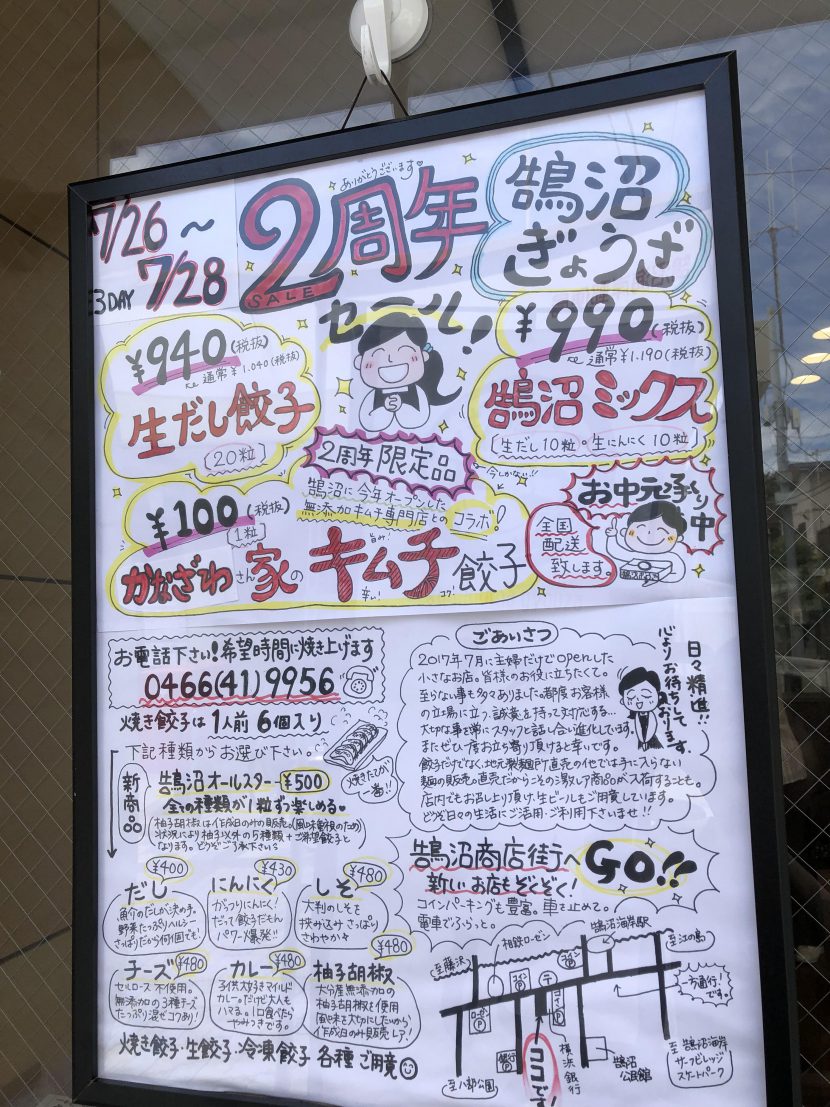 ありがとうございます♡
7/26～
7/28
3DAY
2周年
SALE
セール!
鵠沼
ぎょうざ
¥940(税抜)
通常¥1.040(税抜)
生だし餃子
[20粒]
¥990(税抜)
通常¥1.190(税抜)
鵠沼ミックス
[生だし10粒。生にんにく10粒]
2周年限定品
今しかない!!
鵠沼に今年オープンした
無添加キムチ専門店とのコラボ!
¥100(税抜)
1粒
旨み!
かなざわさん家のキムチ餃子
辛み!
コク!
お中元承り中
全国
配送
致します。
お電話下さい!希望時間に焼き上げます
0466(41)9956
焼き餃子は1人前6個入り
下記種類からお選び下さい。
焼きたてが
一番!!
新商品
鵠沼オールスター ¥500
全ての種類が1粒ずつ楽しめる
柚子胡椒は作成日のみの販売。(風味重視のため)
状況により柚子以外の5種類+ご希望餃子と
なります。どうぞご了承下さい
¥400
だし
魚介のだしが決め手。
野菜たっぷりヘルシー
さっぱりだから何個でも!
¥430
にんにく
がっつりにんにく!
だって餃子だもん
パワー爆発!!
¥480
しそ
大判のしそを
挟み込みさっぱり
さわやか
チーズ ¥480
セルロース不使用。
無添加の3種チーズ
たっぷり混ぜコワあり!
カレー ¥480
子供大好きマイルド
カレー。だけど大人も
ハマる。1口食べたら
やみつきです。
¥480
柚子胡椒
大分産無添加の
柚子胡椒を使用
風味を大切にしたいから
作成日のみ販売レア!
焼き餃子・生餃子・冷凍餃子 各種ご用意
ごあいさつ
2017年7月に主婦だけでOpenした
小さなお店。皆様のお役に立ちたくて。
至らない事も多々ありました。都度お客様
の立場に立つ、誠意を持って対応する...
大切な事を常にスタッフと話し合い進化しています。
またぜひ一度お立ち寄り頂けると幸いです。
餃子だけでなく、地元製麺所直売の他では手に入らない
麺の販売。直売だからこその激レア商品が入荷することも。
店内でもお召し上り頂け、生ビールもご用意しています。
どうぞ日々の生活にご活用・ご利用下さいませ!!
日々精進!!
心よりお待ちして
おります。
鵠沼商店街へGO!!
新しいお店もぞくぞく!
コインパーキングも豊富。車を止めて。
電車でふらっと。
鵠沼海岸駅
相鉄ローゼン
至藤沢
至江の島
コインP
コインP
一方通行!
です。
ローゼンP
銀行P
コインP
横浜銀行
鵠沼
公民館
至八部公園
ココです!
至鵠沼海岸
サーフビレッジ
スケートパーク